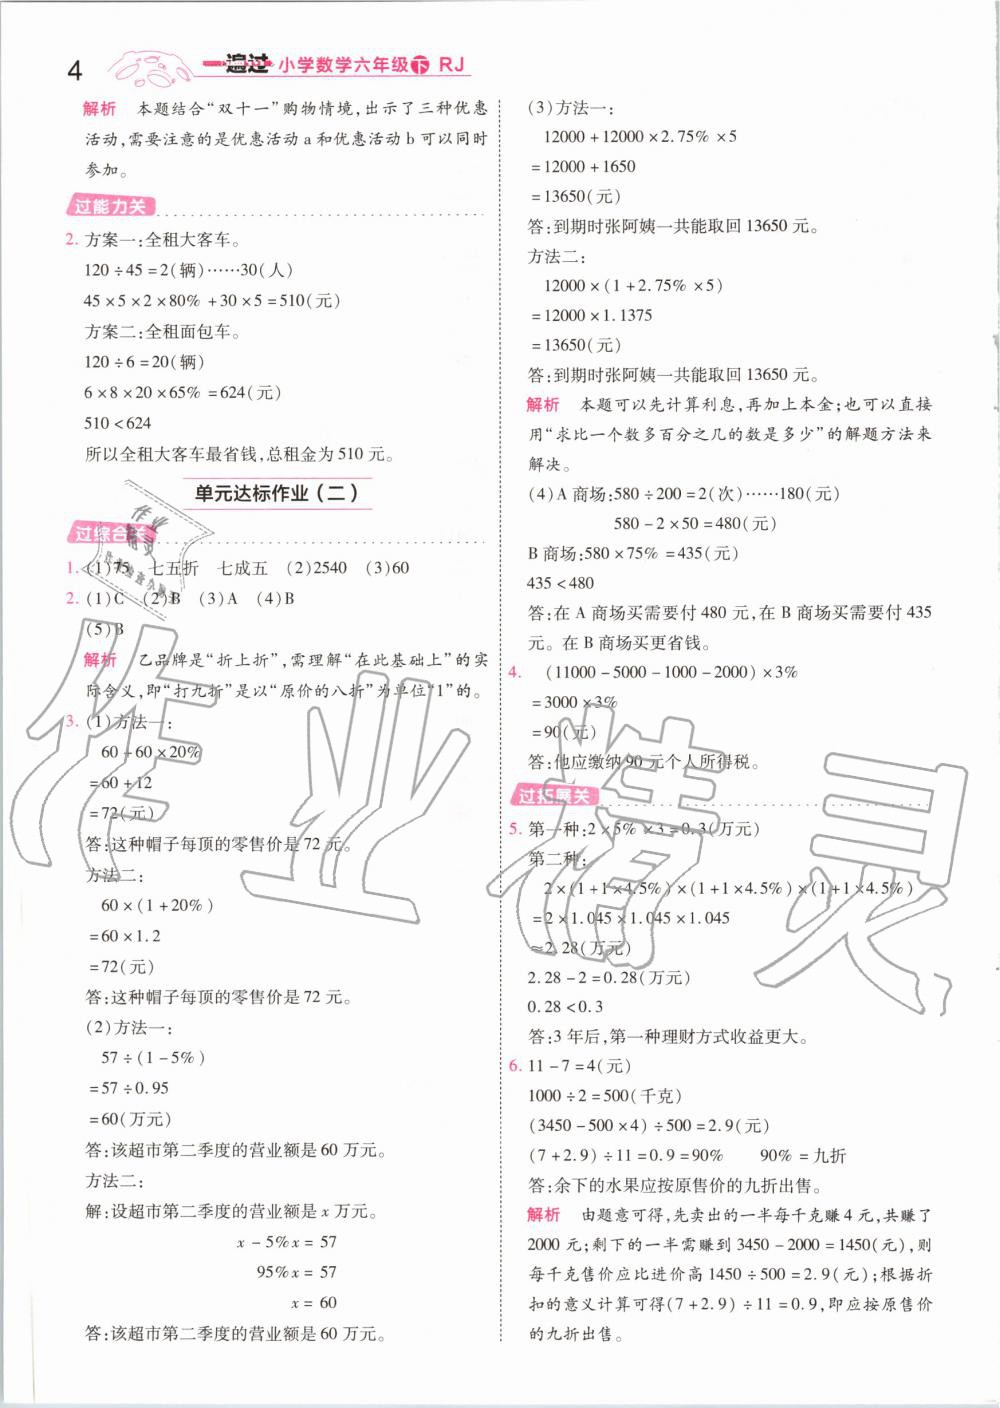 4
一遍过 小学数学六年级下 RJ
解析 本题结合“双十一”购物情境,出示了三种优惠
活动,需要注意的是优惠活动 a 和优惠活动 b 可以同时
参加。
过能力关
2. 方案一:全租大客车。
120÷45=2(辆)……30(人)
45×5×2×80%+30×5=510(元)
方案二:全租面包车。
120÷6=20(辆)
6×8×20×65%=624(元)
510<624
所以全租大客车最省钱,总租金为 510 元。
单元达标作业(二)
过综合关
1. (1)75 七五折 七成五 (2)2540 (3)60
2. (1)C (2)B (3)A (4)B
(5)B
解析 乙品牌是“折上折”,需理解“在此基础上”的实
际含义,即“打九折”是以“原价的八折”为单位“1”的。
3. (1)方法一:
60+60×20%
=60+12
=72(元)
答:这种帽子每顶的零售价是 72 元。
方法二:
60×(1+20%)
=60×1.2
=72(元)
答:这种帽子每顶的零售价是 72 元。
(2)方法一:
57÷(1-5%)
=57÷0.95
=60(万元)
答:该超市第二季度的营业额是 60 万元。
方法二:
解:设超市第二季度的营业额是 x 万元。
x-5%x=57
95%x=57
x=60
答:该超市第二季度的营业额是 60 万元。
(3)方法一:
12000+12000×2.75%×5
=12000+1650
=13650(元)
答:到期时张阿姨一共能取回 13650 元。
方法二:
12000×(1+2.75%×5)
=12000×1.1375
=13650(元)
答:到期时张阿姨一共能取回 13650 元。
解析 本题可以先计算利息,再加上本金;也可以直接
用“求比一个数多百分之几的数是多少”的解题方法来
解决。
(4)A 商场:580÷200=2(次)……180(元)
580-2×50=480(元)
B 商场:580×75%=435(元)
435<480
答:在 A 商场买需要付 480 元,在 B 商场买需要付 435
元。在 B 商场买更省钱。
4. (11000-5000-1000-2000)×3%
=3000×3%
=90(元)
答:他应缴纳 90 元个人所得税。
过拓展关
5. 第一种:2×5%×3=0.3(万元)
第二种:
2×(1+1×4.5%)×(1+1×4.5%)×(1+1×4.5%)
=2×1.045×1.045×1.045
≈2.28(万元)
2.28-2=0.28(万元)
0.28<0.3
答:3 年后,第一种理财方式收益更大。
6. 11-7=4(元)
1000÷2=500(千克)
(3450-500×4)÷500=2.9(元)
(7+2.9)÷11=0.9=90% 90%=九折
答:余下的水果应按原售价的九折出售。
解析 由题意可得,先卖出的一半每千克赚 4 元,共赚了
2000 元;剩下的一半需赚到 3450-2000=1450(元),则
每千克售价应比进价高 1450÷500=2.9(元);根据折
扣的意义计算可得(7+2.9)÷11=0.9,即应按原售价
的九折出售。
作业精灵
作业
精灵